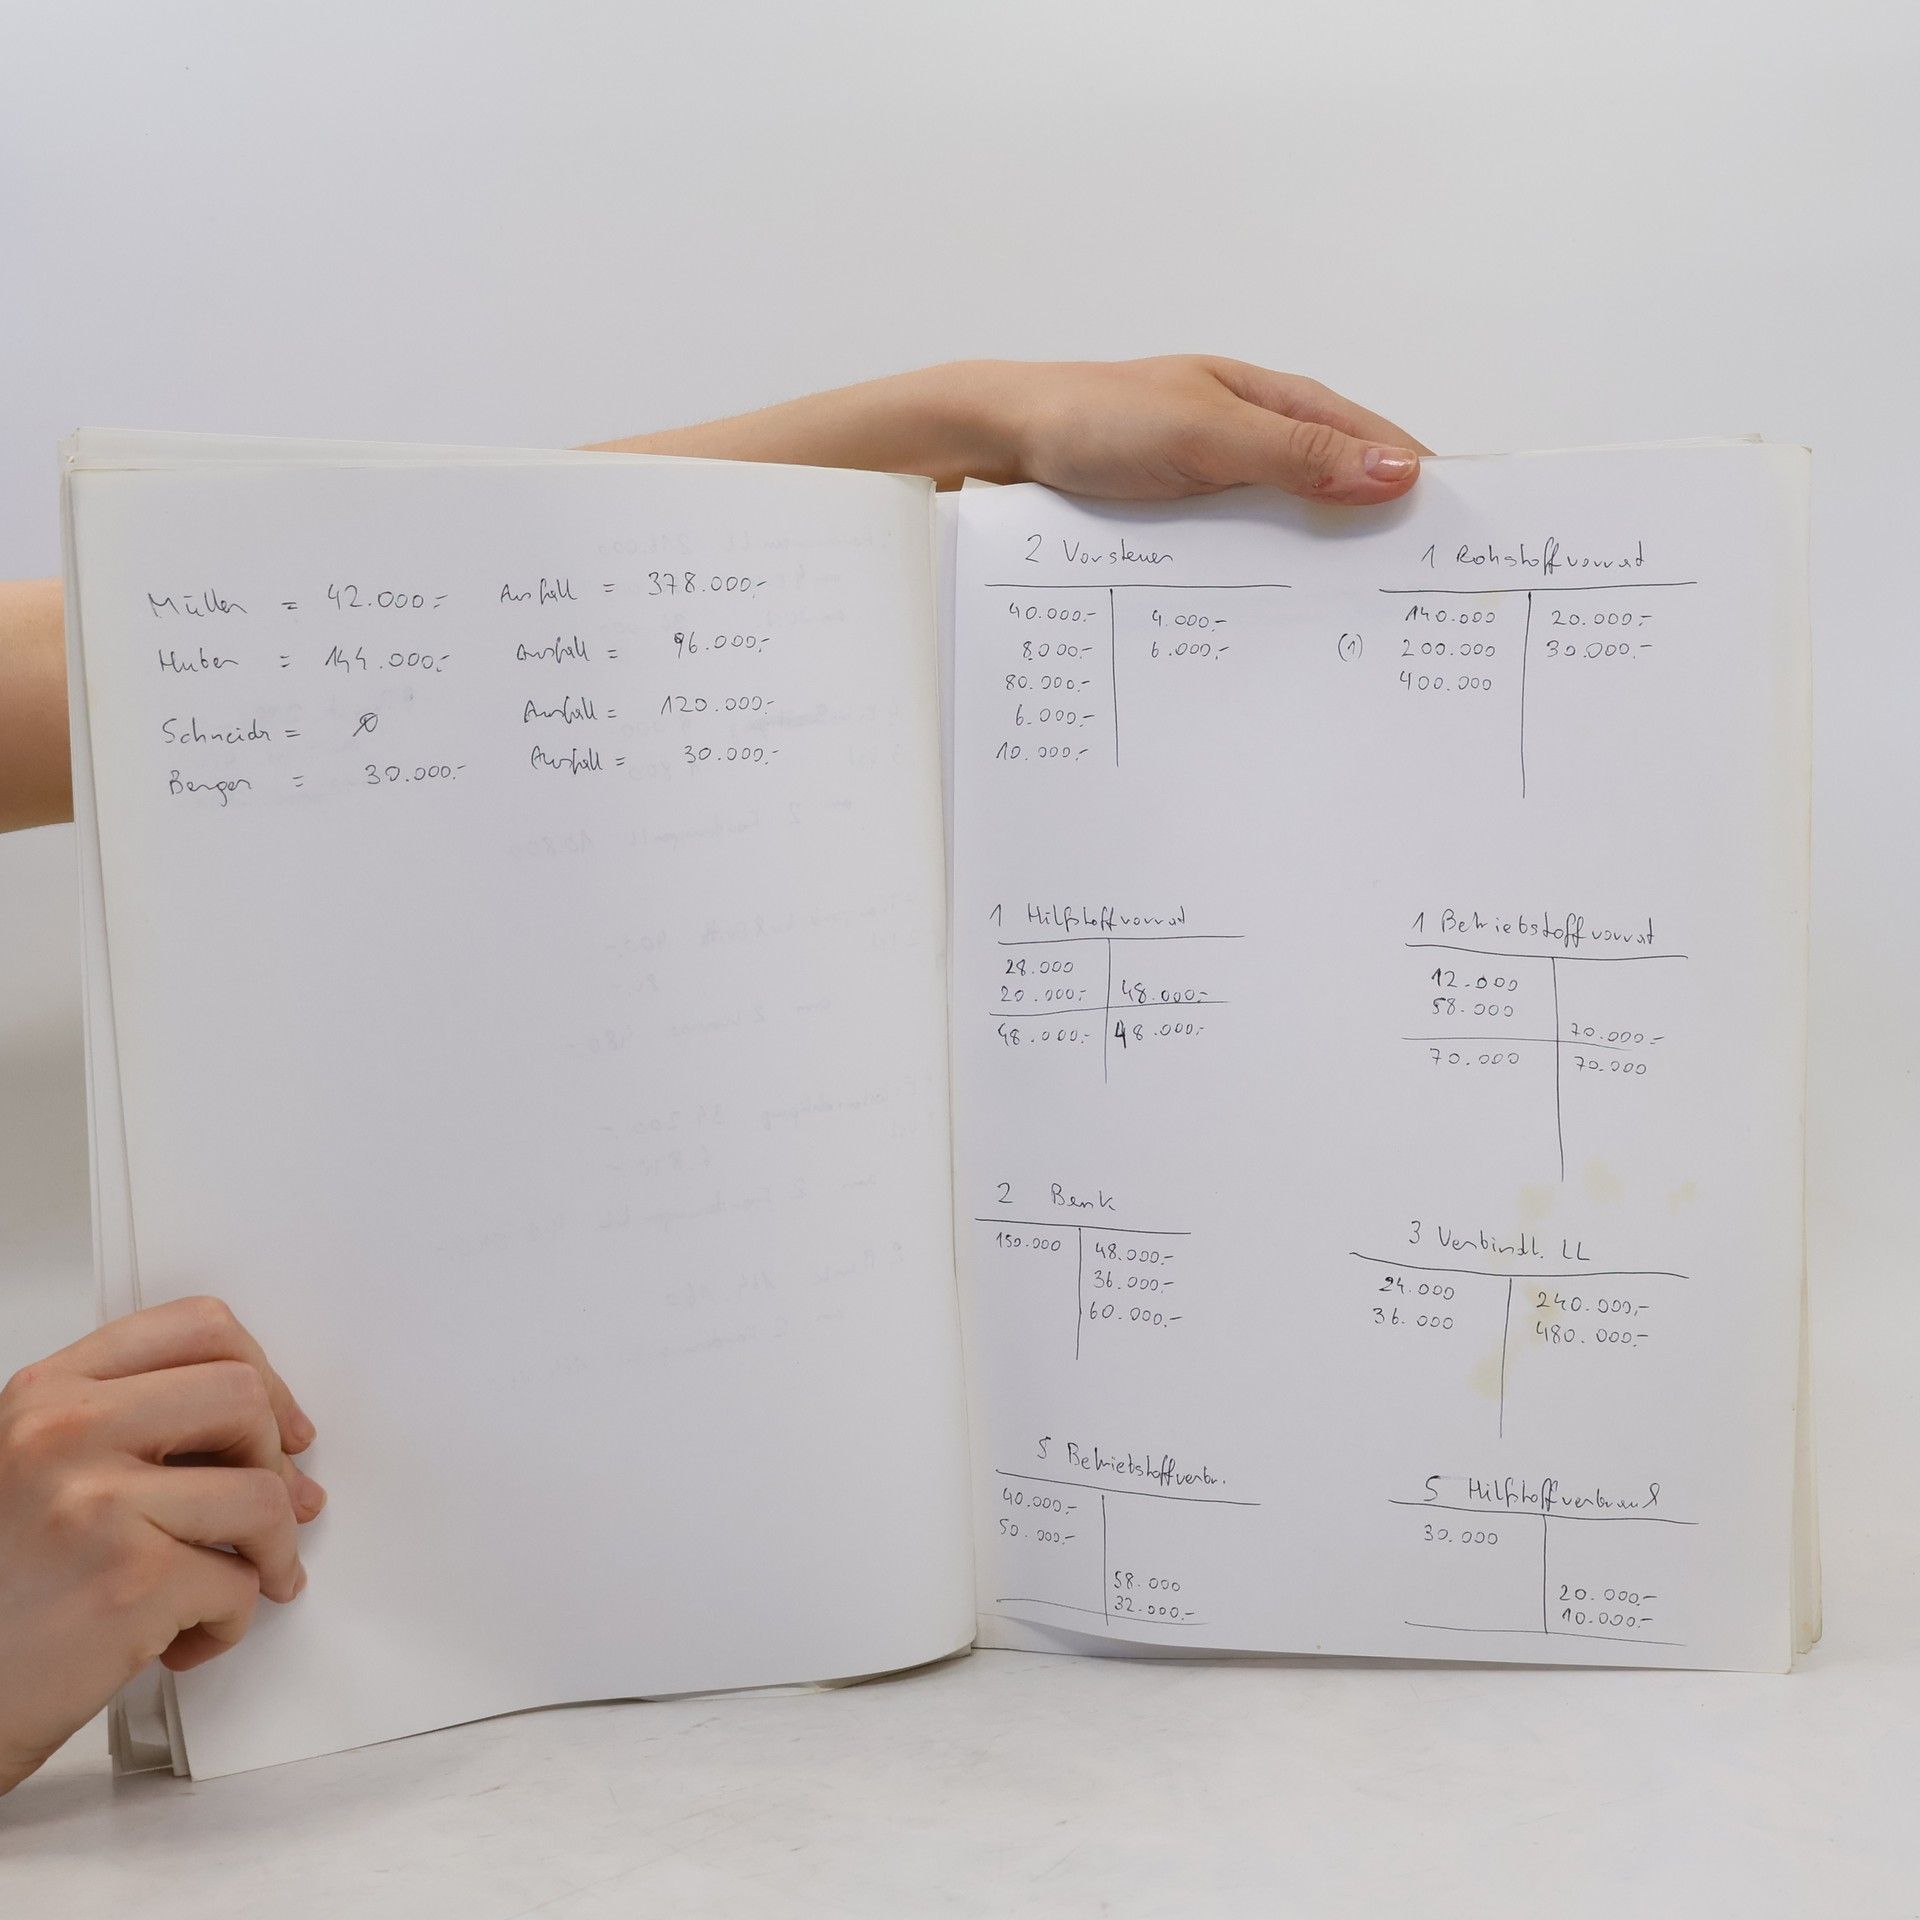 Müller = 42.000.- Ausfall = 378.000,-
Huber = 144.000,- Ausfall = 96.000,-
Schneider = Ø Ausfall = 120.000,-
Berger = 30.000.- Ausfall = 30.000.-
2 Vorsteuer
40.000.- 4.000,-
8000.- 6.000,-
80.000.-
6.000.-
10.000,-
1 Rohstoffvorrat
140.000 20.000,-
(1) 200.000 30.000,-
400.000
1 Hilfstoffvorrat
28.000
20.000,- 48.000,-
48.000,- 48.000,-
1 Betriebstoffvorrat
12.000
58.000
70.000,-
70.000 70.000
2 Bank
150.000 48.000,-
36.000,-
60.000,-
3 Verbindl. LL
24.000 240.000,-
36.000 480.000,-
5 Betriebstoffverbr.
40.000,-
50.000,-
58.000
32.000,-
5 Hilfstoffverbrauch
30.000
20.000,-
10.000,-